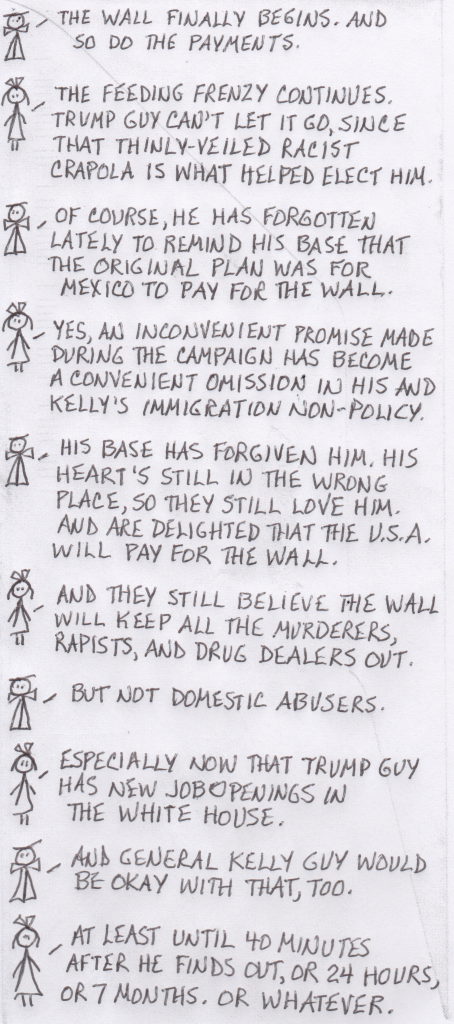 THE WALL FINALLY BEGINS. AND
SO DO THE PAYMENTS.
THE FEEDING FRENZY CONTINUES.
TRUMP GUY CAN'T LET IT GO, SINCE
THAT THINLY-VEILED RACIST
CRAPOLA IS WHAT HELPED ELECT HIM.
OF COURSE, HE HAS FORGOTTEN
LATELY TO REMIND HIS BASE THAT
THE ORIGINAL PLAN WAS FOR
MEXICO TO PAY FOR THE WALL.
YES, AN INCONVENIENT PROMISE MADE
DURING THE CAMPAIGN HAS BECOME
A CONVENIENT OMISSION IN HIS AND
KELLY'S IMMIGRATION NON-POLICY.
HIS BASE HAS FORGIVEN HIM. HIS
HEART'S STILL IN THE WRONG
PLACE, SO THEY STILL LOVE HIM.
AND ARE DELIGHTED THAT THE U.S.A.
WILL PAY FOR THE WALL.
AND THEY STILL BELIEVE THE WALL
WILL KEEP ALL THE MURDERERS,
RAPISTS, AND DRUG DEALERS OUT.
BUT NOT DOMESTIC ABUSERS.
ESPECIALLY NOW THAT TRUMP GUY
HAS NEW JOB OPENINGS IN
THE WHITE HOUSE.
AND GENERAL KELLY GUY WOULD
BE OKAY WITH THAT, TOO.
AT LEAST UNTIL 40 MINUTES
AFTER HE FINDS OUT, OR 24 HOURS,
OR 7 MONTHS. OR WHATEVER.